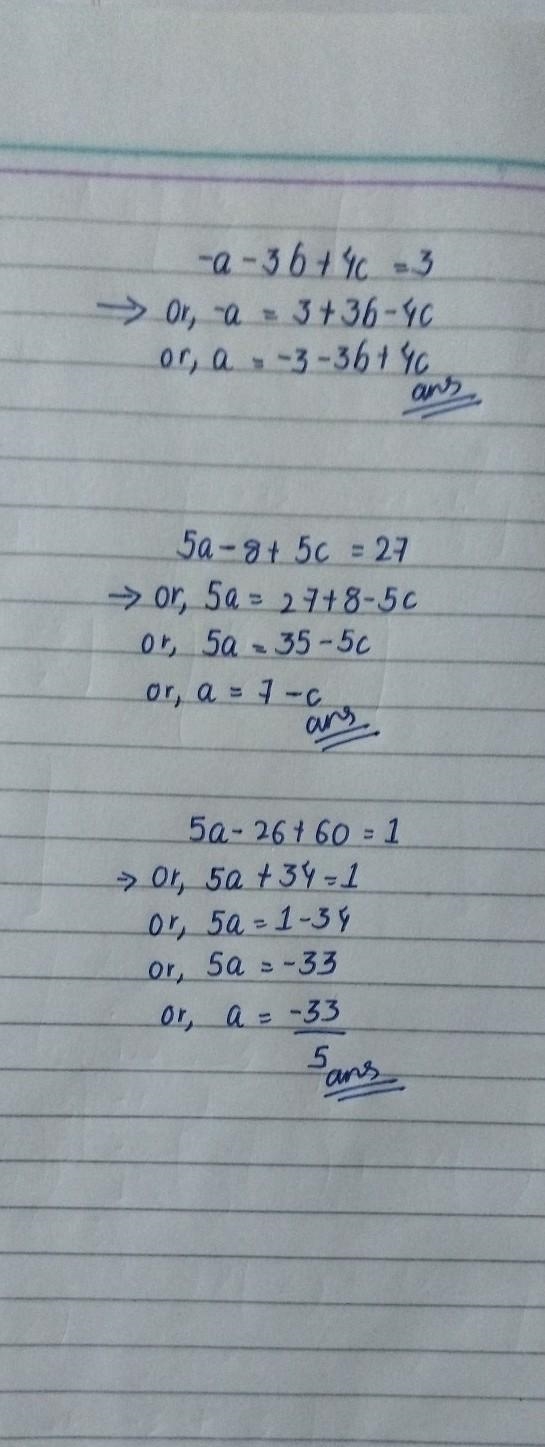 -a - 3b + 4c = 3
→ or, -a = 3 + 3b - 4c
or, a = -3 - 3b + 4c
ans
5a - 8 + 5c = 27
→ or, 5a = 27 + 8 - 5c
or, 5a = 35 - 5c
or, a = 7 - c
ans
5a - 26 + 60 = 1
→ or, 5a + 34 = 1
or, 5a = 1 - 34
or, 5a = -33
or, a = -33
5
ans